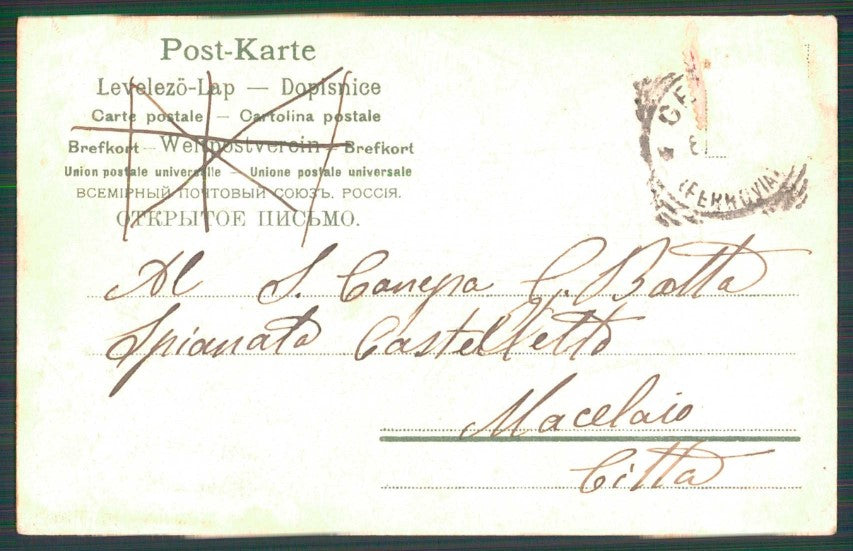 Post-Karte
Levelezö-Lap — Dopisnice
Carte postale — Cartolina postale
Brefkort — Weltpostverein — Brefkort
Union postale universelle — Unione postale universale
ВСЕМІРНЫЙ ПОЧТОВЫЙ СОЮЗЪ. РОССІЯ.
ОТКРЫТОЕ ПИСЬМО.
(FERROVIA)
Al S. Canepa G. Batta
Spianata Castelletto
Macelaio
Citta